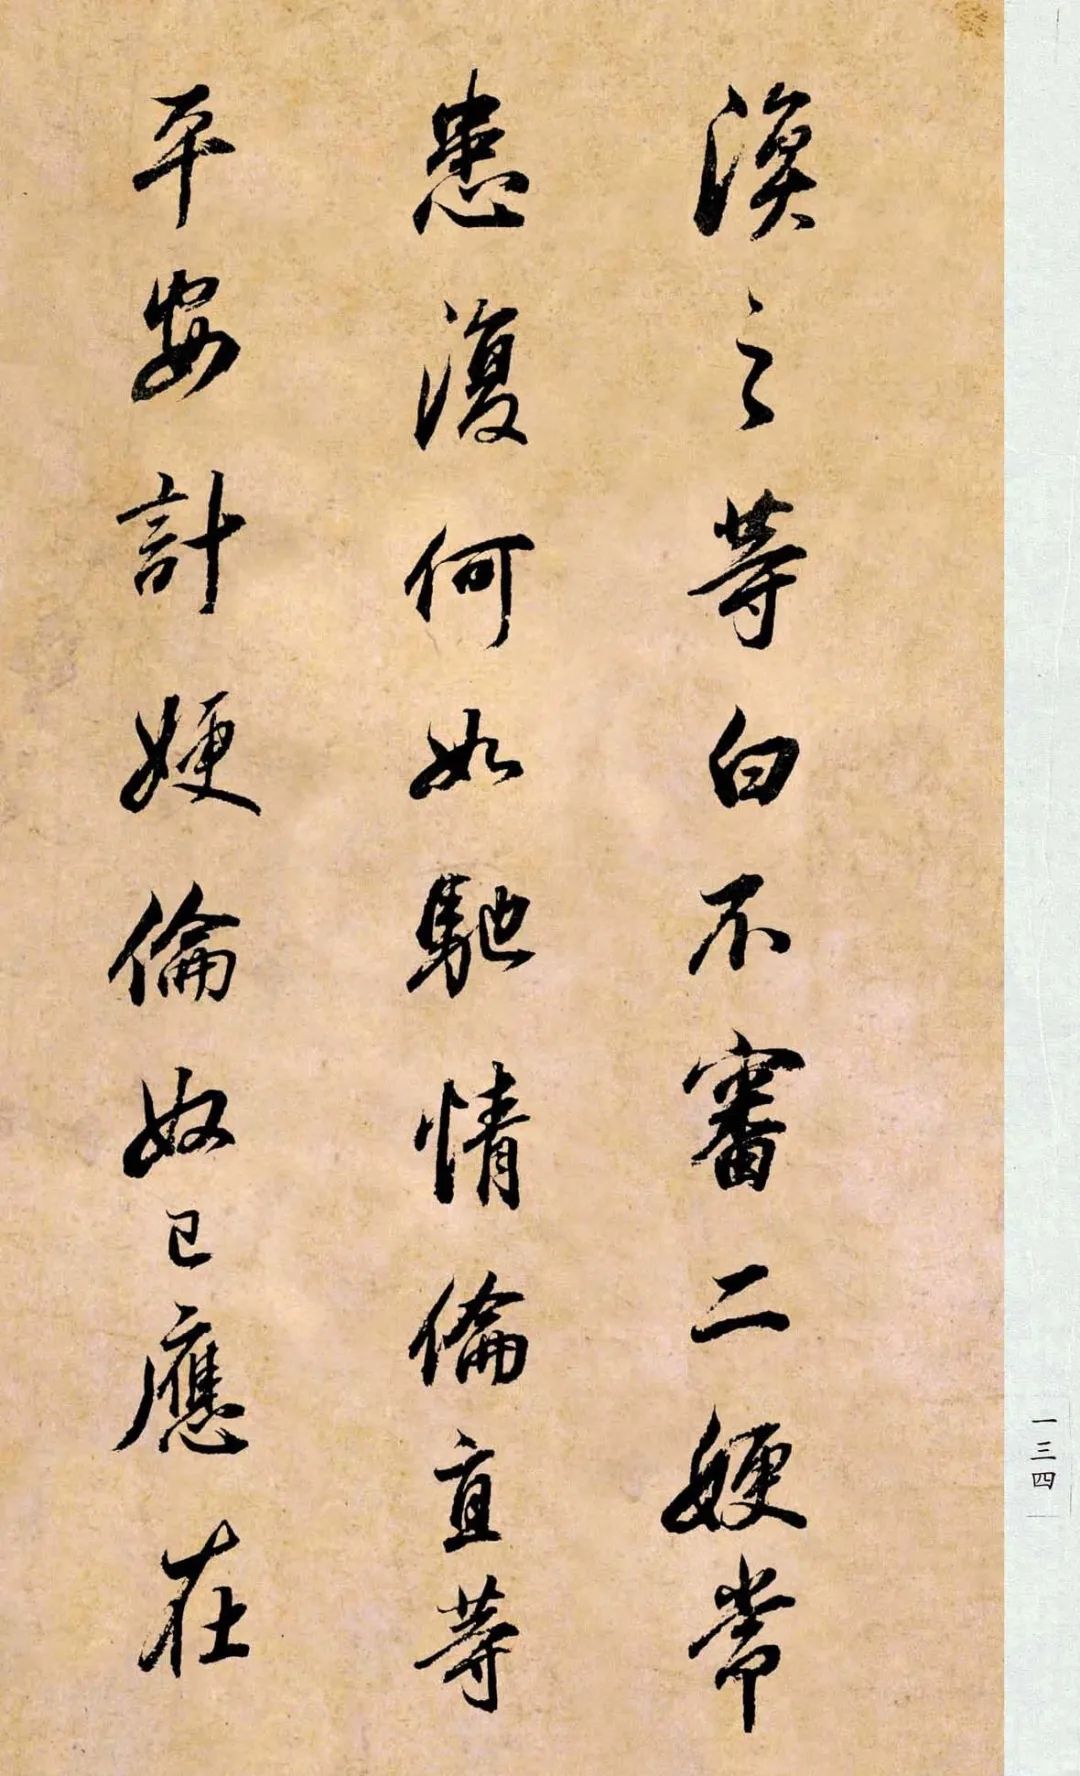 渙之等白不審二㛐常
患復何如馳情倫直等
平安計㛐倫奴已應在
一三四